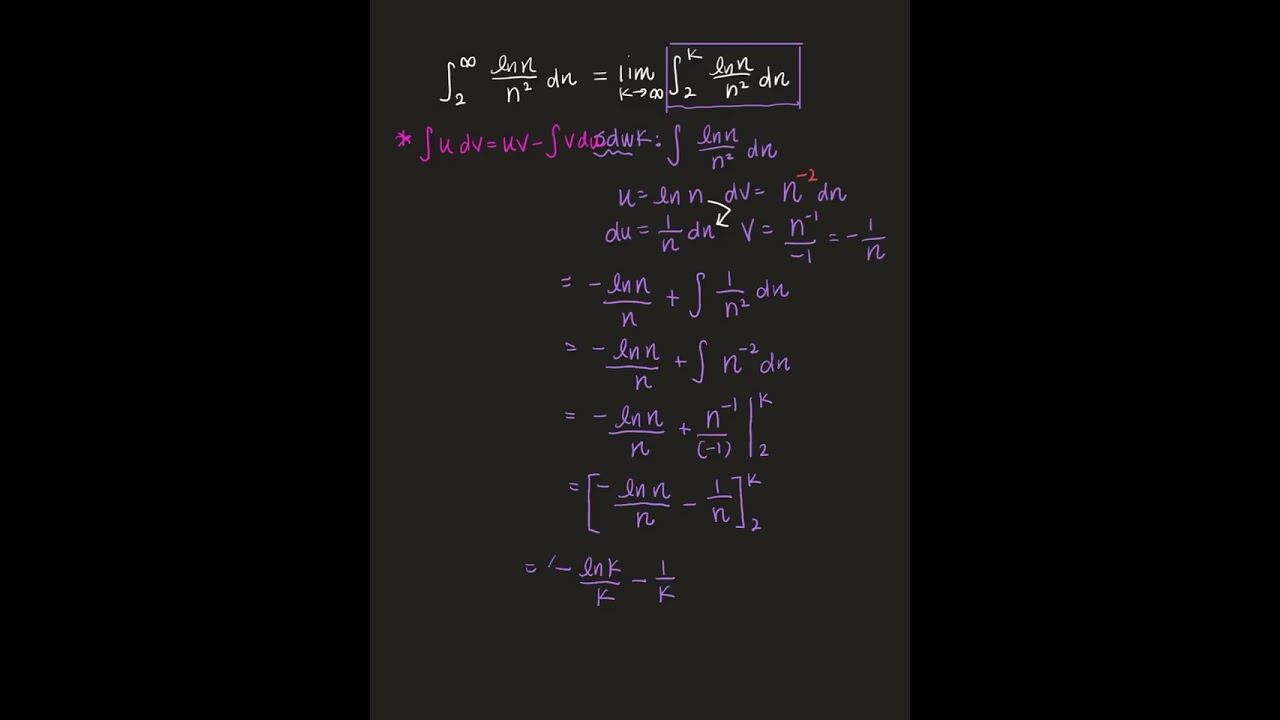 ∫₂^∞ ln n / n² dn = lim K→∞ ∫₂^K ln n / n² dn
* ∫ u dv = uv - ∫ v du sdwk: ∫ ln n / n² dn
u = ln n dv = n⁻² dn
du = 1/n dn v = n⁻¹/-1 = - 1/n
= - ln n / n + ∫ 1/n² dn
= - ln n / n + ∫ n⁻² dn
= - ln n / n + n⁻¹/(-1) |₂^K
= [ - ln n / n - 1/n ]₂^K
= - ln K / K - 1/K